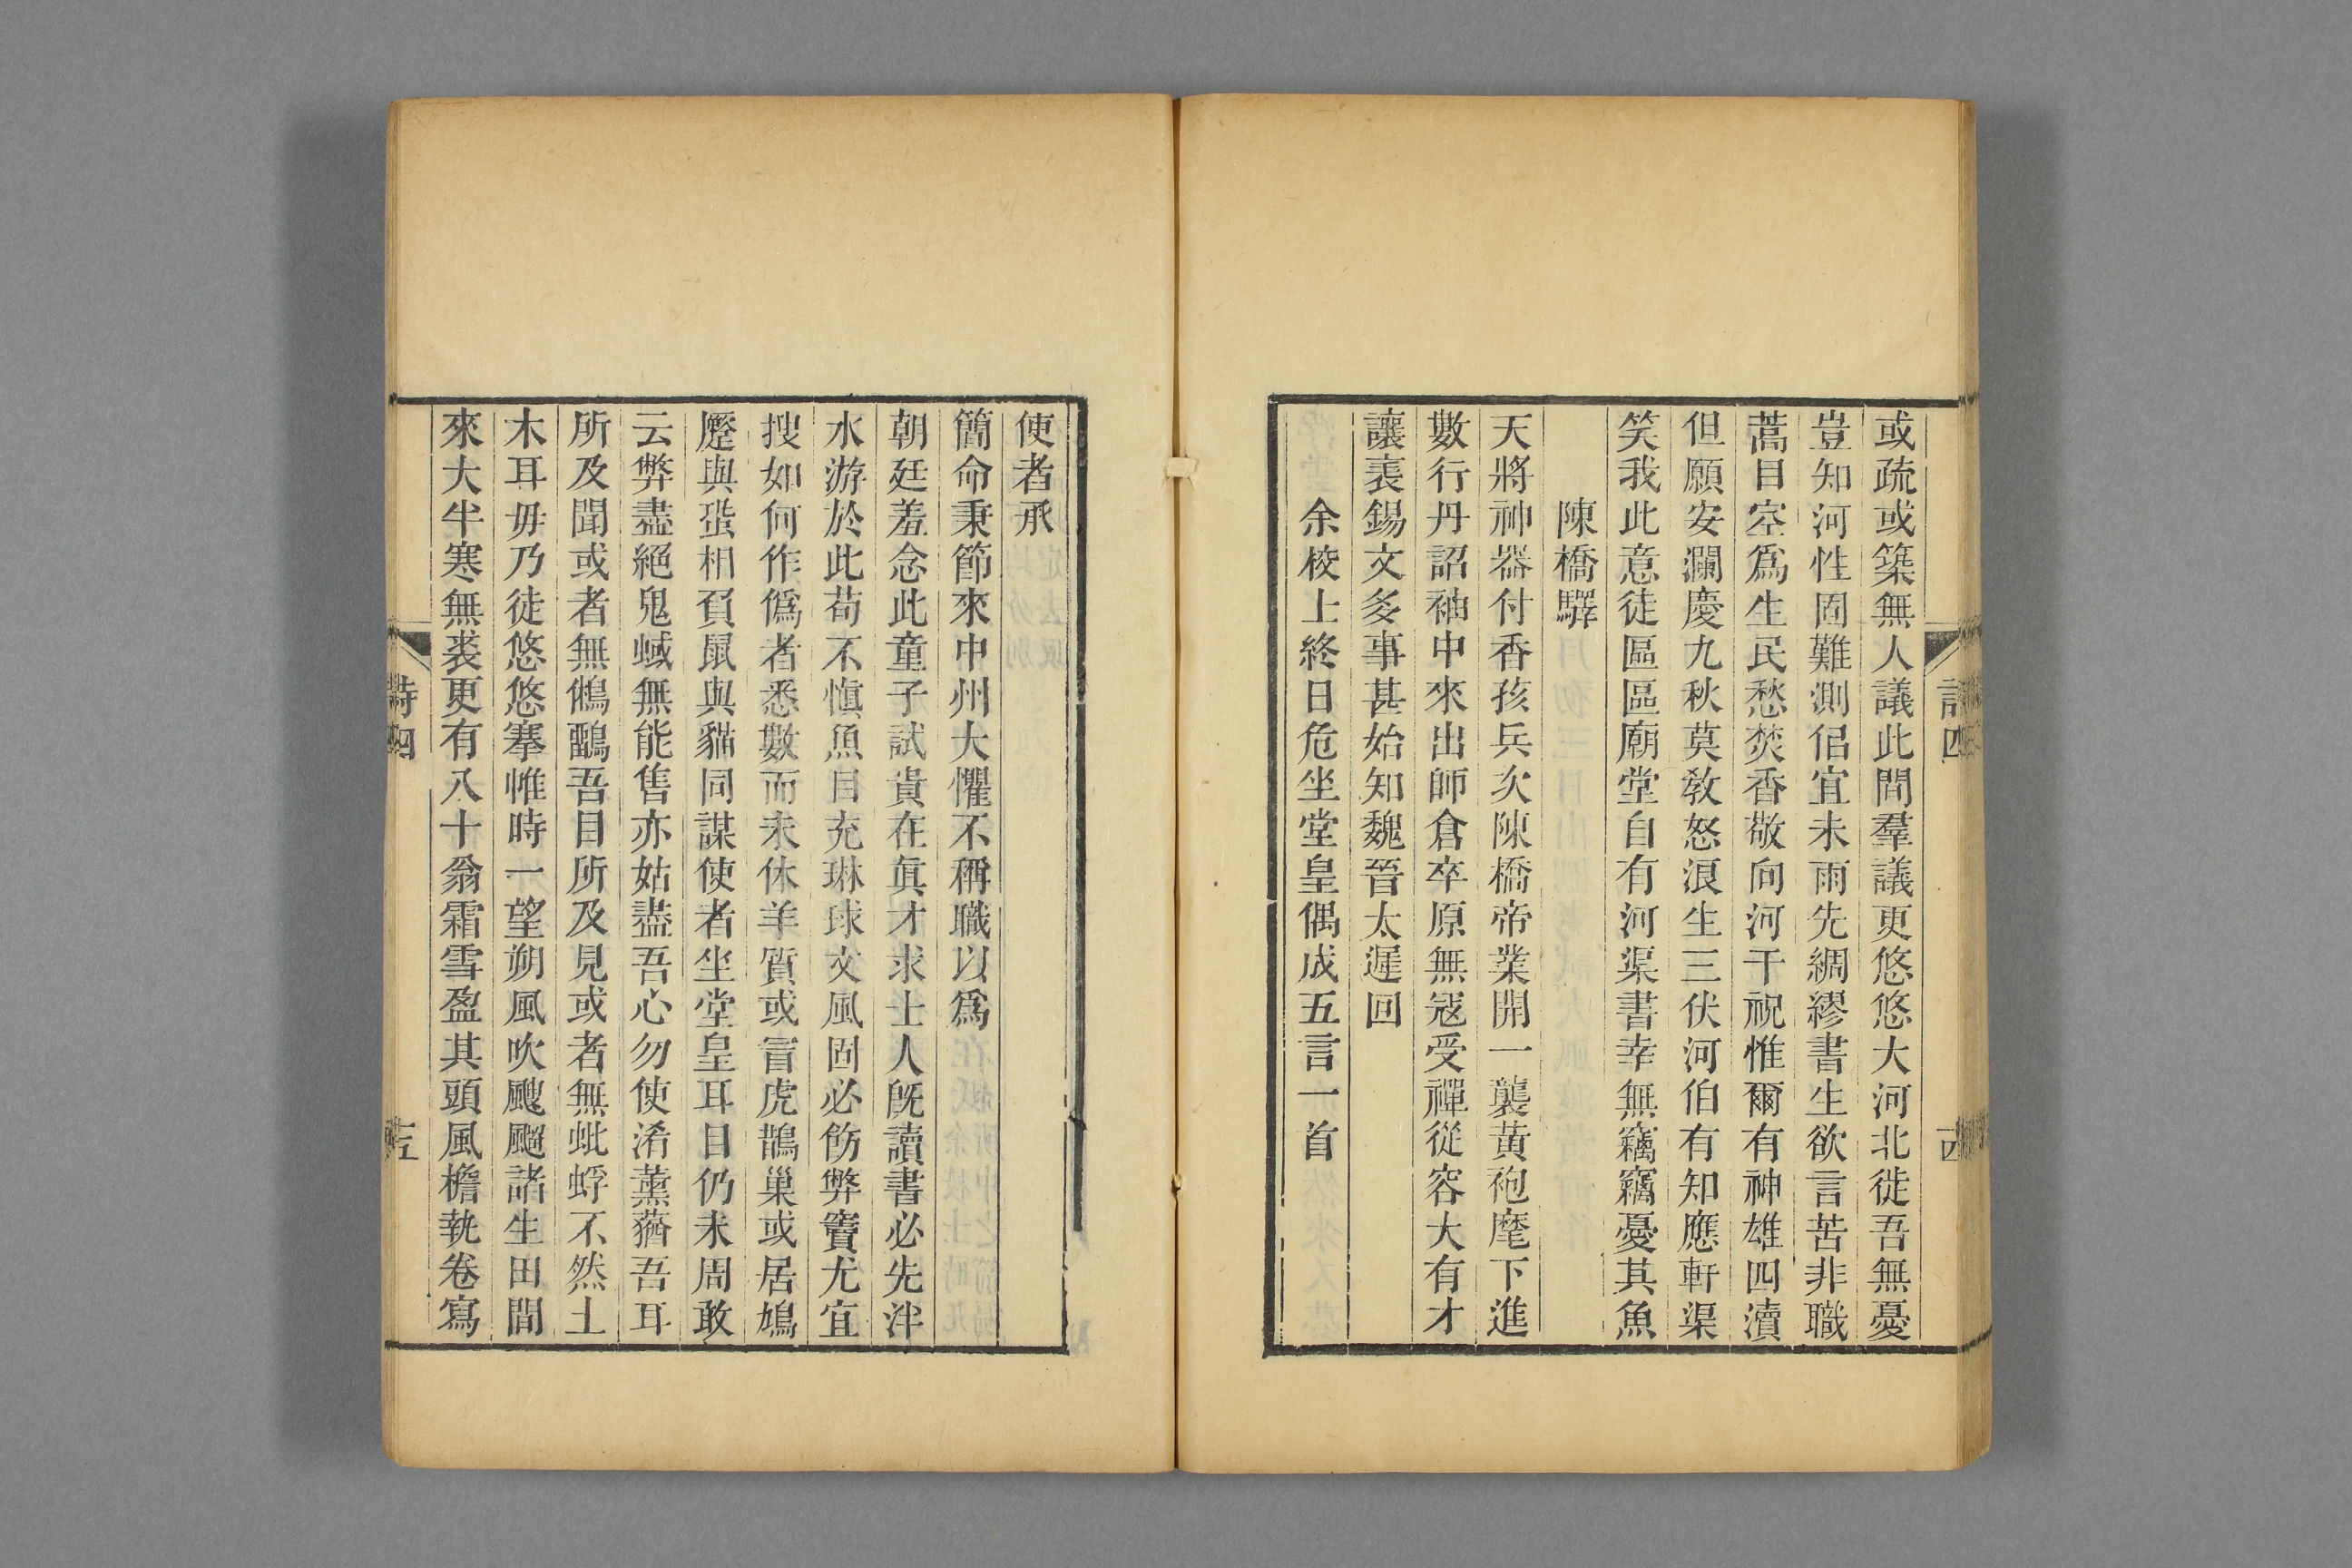 或疏或築無人議此間羣議更悠悠大河北徙吾無憂
豈知河性固難測侣宜未雨先綢繆書生欲言苦非職
蒿目空為生民愁焚香敬向河干祝惟爾有神雄四瀆
但願安瀾慶九秋莫敎怒浪生三伏河伯有知應軒渠
笑我此意徒區區廟堂自有河渠書幸無竊竊憂其魚
陳橋驛
天將神器付香孩兵次陳橋帝業開一襲黃袍麾下進
數行丹詔袖中來出師倉卒原無寇受禪從容大有才
讓表錫文多事甚始知魏晉太遲回
余校士終日危坐堂皇偶成五言一首
使者承
簡命秉節來中州大懼不稱職以為
朝廷羞念此童子試貴在眞才求士人旣讀書必先泮
水游於此苟不愼魚目充琳球文風固必飭弊竇尤宜
搜如何作僞者悉數而未休羊質或冒虎鵲巢或居鳩
蟨與蛩相負鼠與貓同謀使者坐堂皇耳目仍未周敢
云弊盡絕鬼蜮無能售亦姑盡吾心勿使淆薰蕕吾耳
所及聞或者無鵂鶹吾目所及見或者無蚍蜉不然土
木耳毋乃徒悠悠搴帷時一望朔風吹颼飀諸生田間
來大半寒無裘更有八十翁霜雪盈其頭風檐執卷寫
詩四